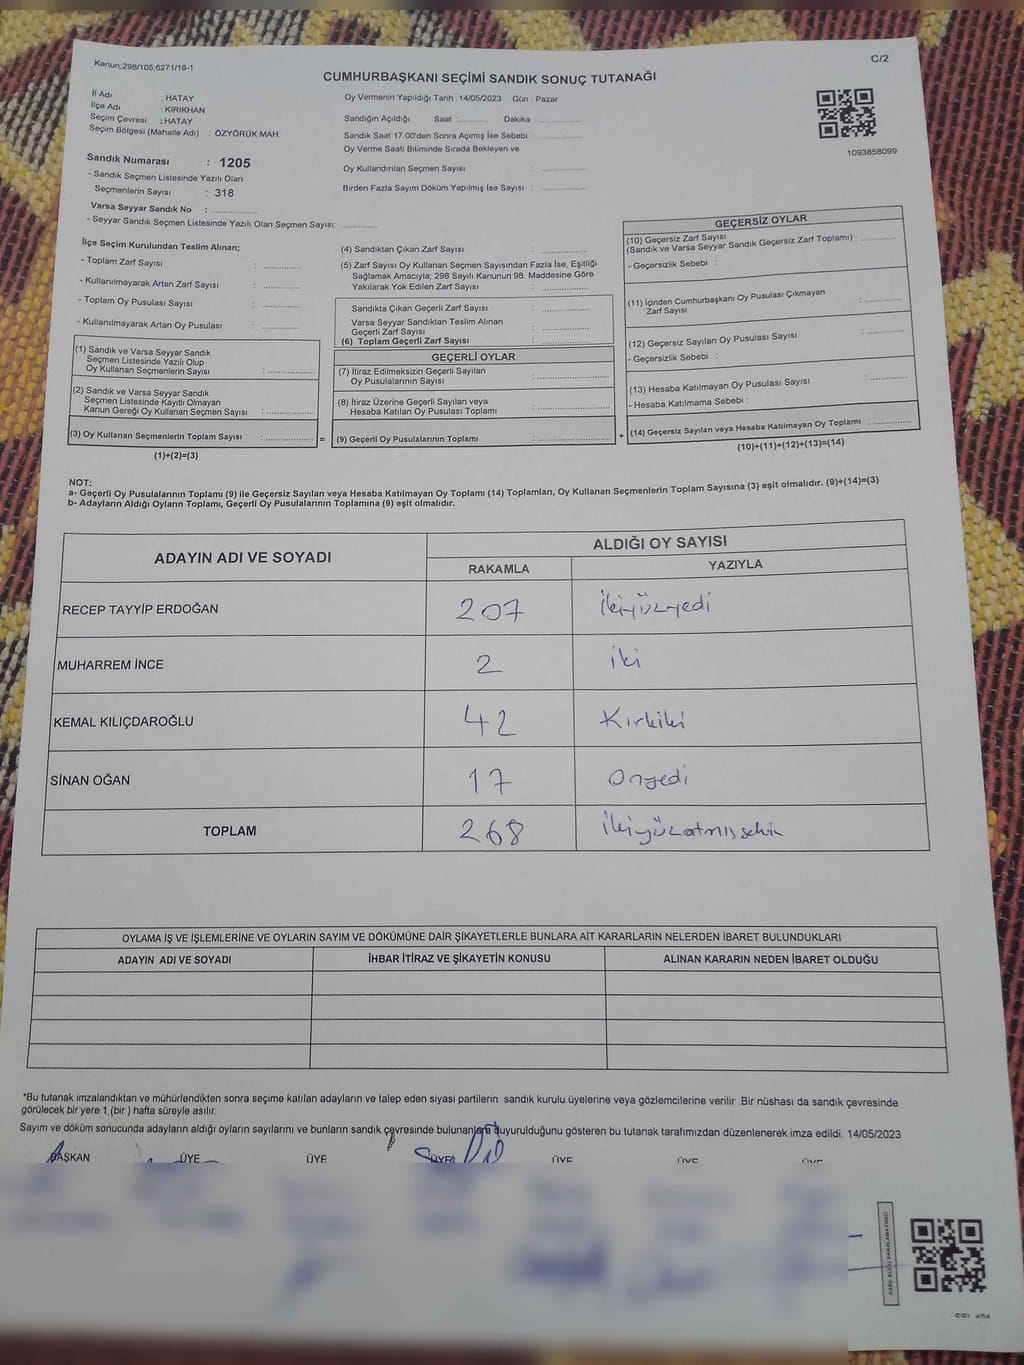 Kanun:298/105;6271/18-1
C/2
CUMHURBAŞKANI SEÇİMİ SANDIK SONUÇ TUTANAĞI
İl Adı : HATAY
İlçe Adı : KIRIKHAN
Seçim Çevresi : HATAY
Seçim Bölgesi (Mahalle Adı) : ÖZYÖRÜK MAH.
Sandık Numarası : 1205
- Sandık Seçmen Listesinde Yazılı Olan
Seçmenlerin Sayısı : 318
Varsa Seyyar Sandık No : ..............
- Seyyar Sandık Seçmen Listesinde Yazılı Olan Seçmen Sayısı: ............
Oy Vermenin Yapıldığı Tarih : 14/05/2023 Gün : Pazar
Sandığın Açıldığı Saat :.......... Dakika :..............
Sandık Saat 17.00'den Sonra Açımış İse Sebebi : ..............
Oy Verme Saati Bitiminde Sırada Bekleyen ve
Oy Kullandırılan Seçmen Sayısı : ..............
Birden Fazla Sayım Döküm Yapılmış İse Sayısı : ..............
1093858099
İlçe Seçim Kurulundan Teslim Alınan;
- Toplam Zarf Sayısı : ............
- Kullanılmayarak Artan Zarf Sayısı : ............
- Toplam Oy Pusulası Sayısı : ............
- Kullanılmayarak Artan Oy Pusulası : ............
(1) Sandık ve Varsa Seyyar Sandık
Seçmen Listesinde Yazılı Olup
Oy Kullanan Seçmenlerin Sayısı : ..............
(2) Sandık ve Varsa Seyyar Sandık
Seçmen Listesinde Kayıtlı Olmayan
Kanun Gereği Oy Kullanan Seçmen Sayısı : ..............
(3) Oy Kullanan Seçmenlerin Toplam Sayısı : .............. =
(1)+(2)=(3)
(4) Sandıktan Çıkan Zarf Sayısı : ..............
(5) Zarf Sayısı Oy Kullanan Seçmen Sayısından Fazla İse, Eşitliği
Sağlamak Amacıyla; 298 Sayılı Kanunun 98. Maddesine Göre
Yakılarak Yok Edilen Zarf Sayısı : ..............
Sandıkta Çıkan Geçerli Zarf Sayısı : ..............
Varsa Seyyar Sandıktan Teslim Alınan
Geçerli Zarf Sayısı : ..............
(6) Toplam Geçerli Zarf Sayısı : ..............
GEÇERLİ OYLAR
(7) İtiraz Edilmeksizin Geçerli Sayılan
Oy Pusulalarının Sayısı : ..............
(8) İtiraz Üzerine Geçerli Sayılan veya
Hesaba Katılan Oy Pusulası Toplamı : ..............
(9) Geçerli Oy Pusulalarının Toplamı : .............. +
GEÇERSİZ OYLAR
(10) Geçersiz Zarf Sayısı
(Sandık ve Varsa Seyyar Sandık Geçersiz Zarf Toplamı) : ............
- Geçersizlik Sebebi :
(11) İçinden Cumhurbaşkanı Oy Pusulası Çıkmayan
Zarf Sayısı : ............
(12) Geçersiz Sayılan Oy Pusulası Sayısı : ............
- Geçersizlik Sebebi :
(13) Hesaba Katılmayan Oy Pusulası Sayısı : ............
- Hesaba Katılmama Sebebi :
(14) Geçersiz Sayılan veya Hesaba Katılmayan Oy Toplamı : ............
(10)+(11)+(12)+(13)=(14)
NOT:
a- Geçerli Oy Pusulalarının Toplamı (9) ile Geçersiz Sayılan veya Hesaba Katılmayan Oy Toplamı (14) Toplamları, Oy Kullanan Seçmenlerin Toplam Sayısına (3) eşit olmalıdır. (9)+(14)=(3)
b- Adayların Aldığı Oyların Toplamı, Geçerli Oy Pusulalarının Toplamına (9) eşit olmalıdır.
ADAYIN ADI VE SOYADI
ALDIĞI OY SAYISI
RAKAMLA YAZIYLA
RECEP TAYYİP ERDOĞAN 207 İkiyüzyedi
MUHARREM İNCE 2 iki
KEMAL KILIÇDAROĞLU 42 Kırkiki
SİNAN OĞAN 17 Onyedi
TOPLAM 268 İkiyüzatmışsekiz
OYLAMA İŞ VE İŞLEMLERİNE VE OYLARIN SAYIM VE DÖKÜMÜNE DAİR ŞİKAYETLERLE BUNLARA AİT KARARLARIN NELERDEN İBARET BULUNDUKLARI
ADAYIN ADI VE SOYADI İHBAR İTİRAZ VE ŞİKAYETİN KONUSU ALINAN KARARIN NEDEN İBARET OLDUĞU
*Bu tutanak imzalandıktan ve mühürlendikten sonra seçime katılan adayların ve talep eden siyasi partilerin sandık kurulu üyelerine veya gözlemcilerine verilir .Bir nüshası da sandık çevresinde
görülecek bir yere 1 (bir ) hafta süreyle asılır.
Sayım ve döküm sonucunda adayların aldığı oyların sayılarını ve bunların sandık çevresinde bulunanlara duyurulduğunu gösteren bu tutanak tarafımızdan düzenlenerek imza edildi. 14/05/2023
BAŞKAN ÜYE ÜYE ÜYE ÜYE ÜYE ÜYE